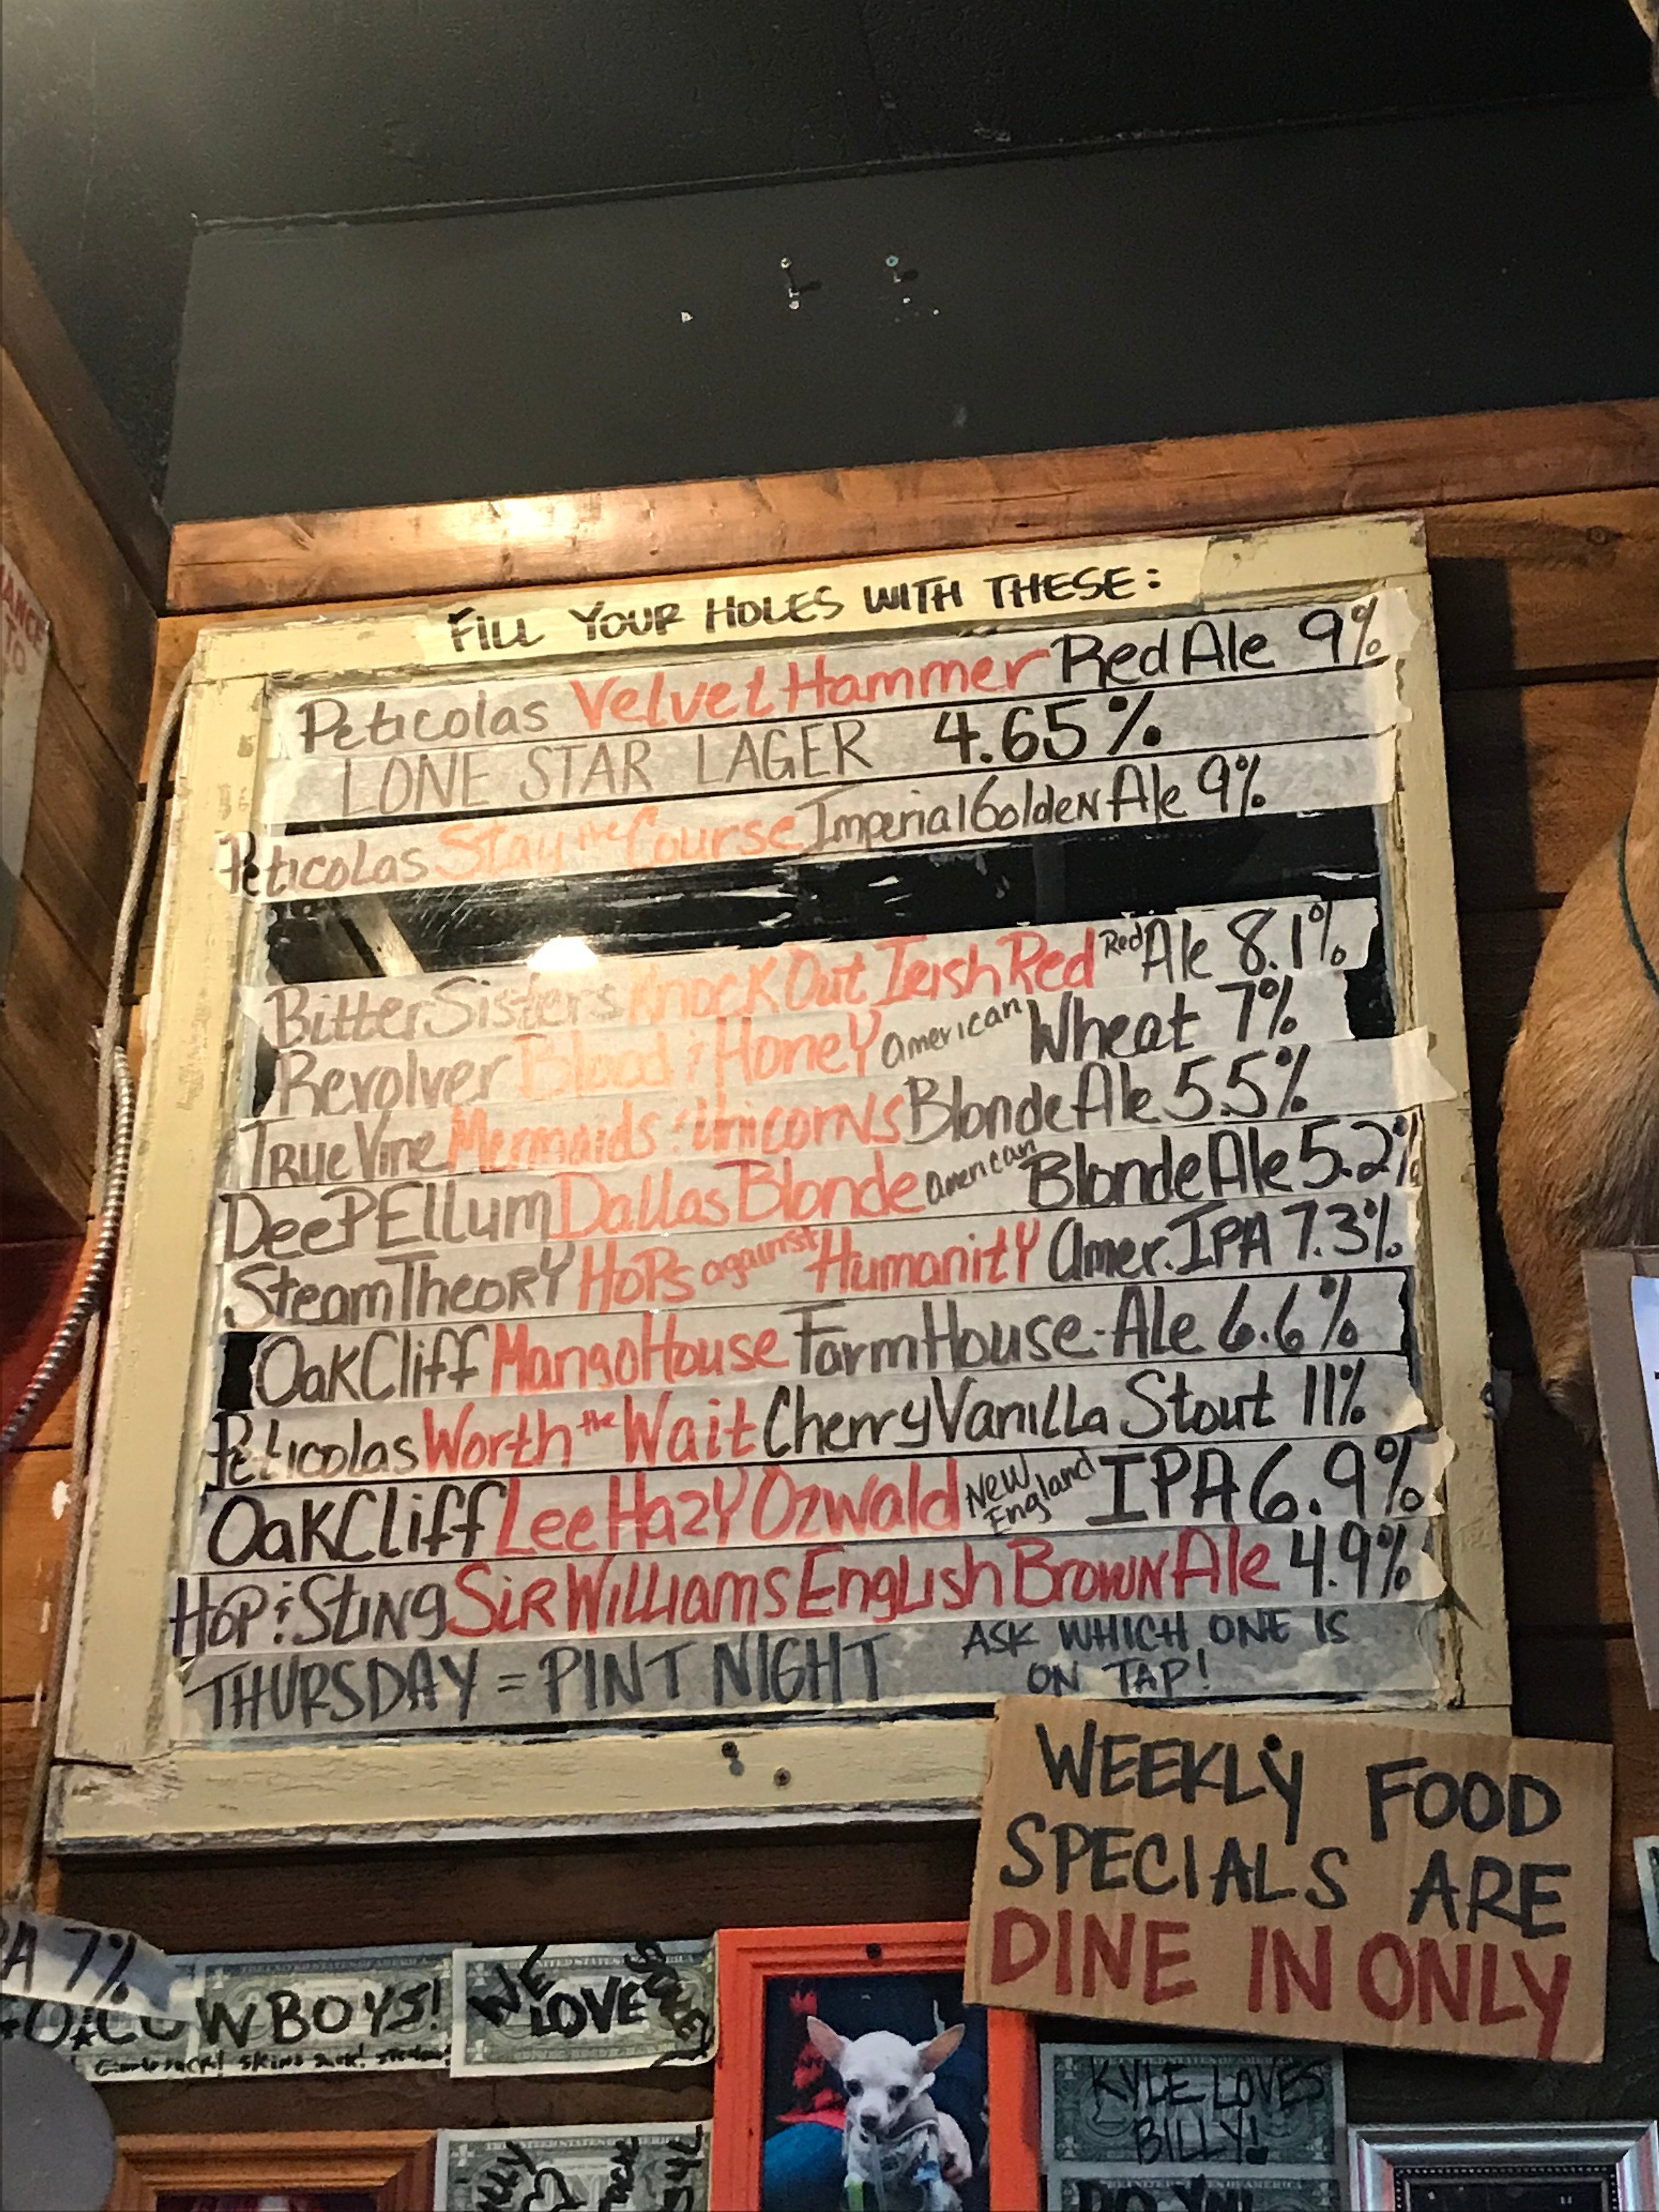 FILL YOUR HOLES WITH THESE:
Peticolas Velvet Hammer Red Ale 9%
LONE STAR LAGER 4.65%
Peticolas Stay the Course Imperial Golden Ale 9%
Bitter Sisters Knock Out Irish Red Red Ale 8.1%
Revolver Blood & Honey American Wheat 7%
True Vine Mermaids & Unicorns Blonde Ale 5.5%
Deep Ellum Dallas Blonde American Blonde Ale 5.2%
Steam Theory Hops against Humanity Amer. IPA 7.3%
Oak Cliff Mango House FarmHouse-Ale 6.6%
Peticolas Worth the Wait Cherry Vanilla Stout 11%
Oak Cliff Lee Hazy Ozwald New England IPA 6.9%
Hop & Sting Sir Williams English Brown Ale 4.9%
THURSDAY = PINT NIGHT ASK WHICH ONE IS
ON TAP!
WEEKLY FOOD
SPECIALS ARE
DINE IN ONLY
A 7%
COWBOYS!
WE
LOVE
KYLE LOVES
BILLY!